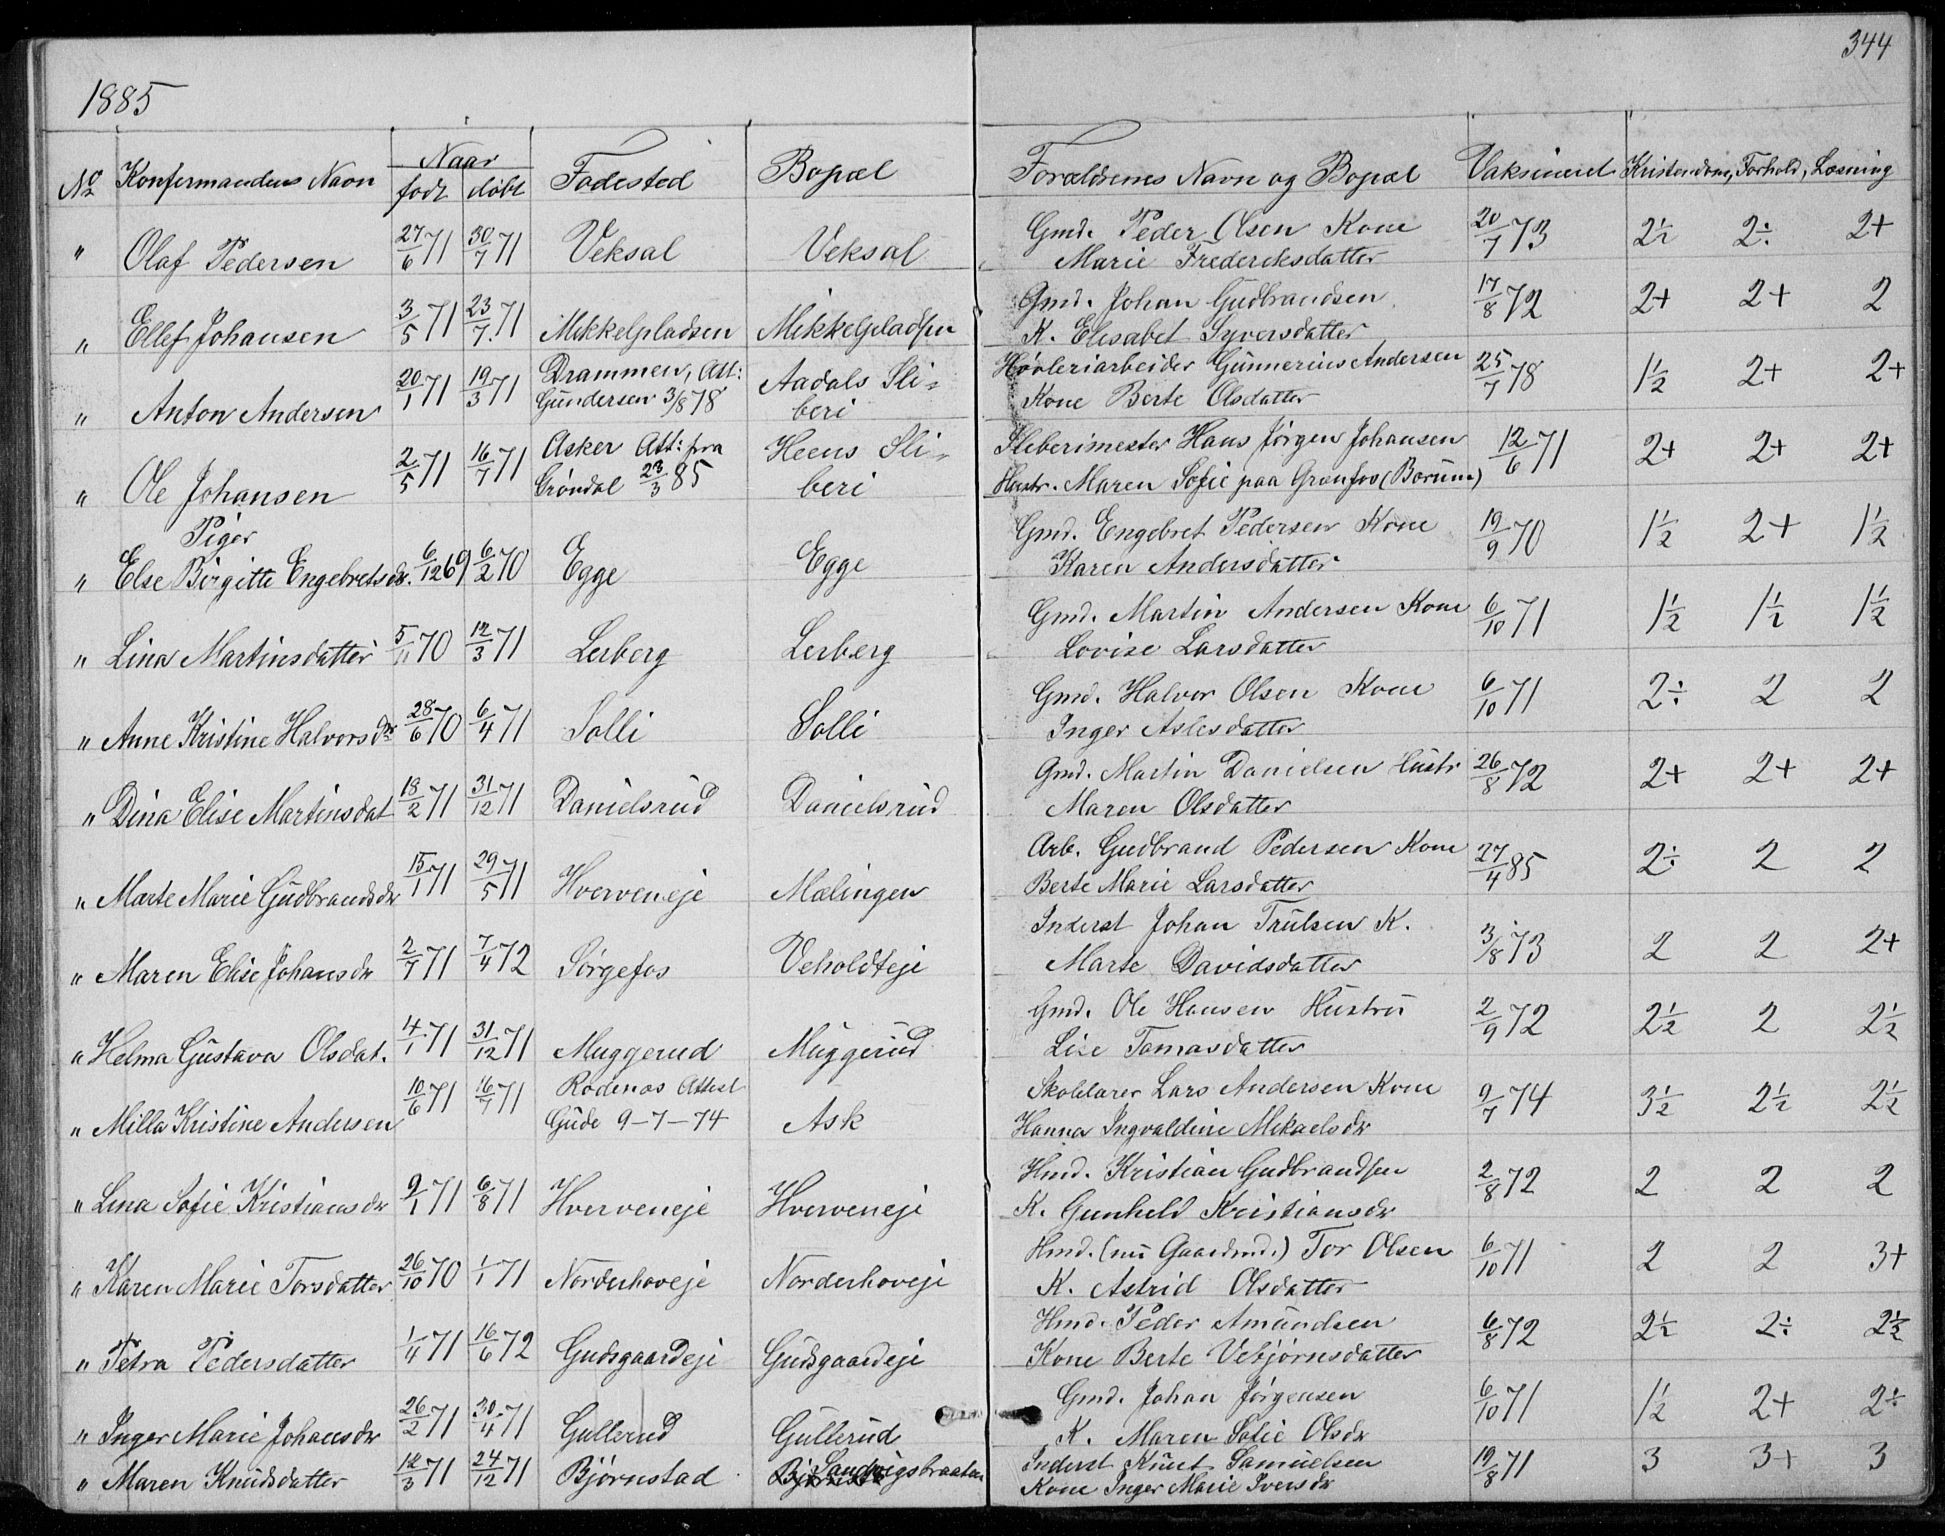 344
1885
No Konfermandens Navn Naar født døbt Fødested Bopæl Forældrenes Navn og Bopæl Vaksineret Kristendom, Forhold, Læsning
" Olaf Pedersen 27/6 71 30/7 71 Veksal Veksal Gmd. Peder Olsen Kone 20/7 73 2½ 2÷ 2+
Marie Frederiksdatter
" Ellef Johansen 3/5 71 23/7 71 Mikkelpladsen Mikkelpladsen Gmd. Johan Gudbrandsen 17/8 72 2+ 2+ 2
K. Elisabet Syversdatter
" Anton Andersen 20/1 71 19/3 71 Drammen, Att: Aadals Sli= Høvleriarbeider Gunnerius Andersen 25/7 78 1½ 2+ 2+
Gundersen 3/8 78 beri Kone Berte Olsdatter
" Ole Johansen 2/5 71 16/7 71 Asker Att: fra Heens Sli= Sliberimester Hans Jørgen Johansen 12/6 71 2+ 2+ 2+
Gröndal 23/3 85 beri Hustr. Maren Sofie paa Granfos (Bærum)
Piger
" Else Birgitte Engebretsdr. 6/12 69 6/2 70 Egge Egge Gmd. Engebret Pedersen Kone 19/9 70 1½ 2+ 1½
Karen Andersdatter
" Lina Martinsdatter 5/11 70 12/3 71 Lerberg Lerberg Gmd. Martin Andersen Kone 6/10 71 1½ 1½ 1½
Lovise Larsdatter
" Anne Kristine Halvorsdr 28/6 70 6/4 71 Solli Solli Gmd. Halvor Olsen Kone 6/10 71 2÷ 2 2
Inger Aslesdatter
" Dina Elise Martinsdat 18/2 71 31/12 71 Danielsrud Danielsrud Gmd. Martin Danielsen Hustr 26/8 72 2+ 2+ 2+
Maren Olsdatter
" Marte Marie Gudbrandsdr 15/1 71 29/5 71 Hverveneje Mælingen Arb. Gudbrand Pedersen Kone 27/4 85 2÷ 2 2
Berte Marie Larsdatter
" Maren Elise Johansdr 2/7 71 7/4 72 Sørgefos Veholdteje Inderst Johan Trulsen K. 3/8 73 2 2 2+
Marte Davidsdatter
" Helma Gustava Olsdat. 14/1 71 31/12 71 Muggerud Muggerud Gmd. Ole Hansen Hustru 2/9 72 2½ 2 2½
Lise Tomasdatter
" Milla Kristine Andersen 10/6 71 16/7 71 Rødenæs Attest Ask Skolelærer Lars Andersen Kone 9/7 74 3½ 2½ 2½
Gude 9-7-74 Hanna Ingvaldine Mikaelsdr
" Lina Sofie Kristiansdr 9/1 71 6/8 71 Hverveneje Hverveneje Hmd. Kristian Gudbrandsen 2/8 72 2 2 2
K. Gunhild Kristiansdr
" Karen Marie Torsdatter 26/10 70 1/1 71 Norderhoveje Norderhoveje Hmd. (nu Gaardmd.) Tor Olsen 6/10 71 2 2 3+
K. Astrid Olsdatter
" Petra Pedersdatter 1/4 71 16/6 72 Gudsgaardeje Gudsgaardeje Hmd. Peder Amundsen 6/8 72 2½ 2÷ 2½
Kone Berte Vebjørnsdatter
" Inger Marie Johansdr 26/2 71 30/4 71 Gullerud Gullerud Gmd. Johan Jørgensen 6/10 71 1½ 2+ 2÷
K. Maren Sofie Olsdr
" Maren Knudsdatter 12/3 71 24/12 71 Bjørnstad Sandvigsbraaten Inderst Knut Samuelsen 19/8 71 3 3+ 3
Kone Inger Marie Iversdr